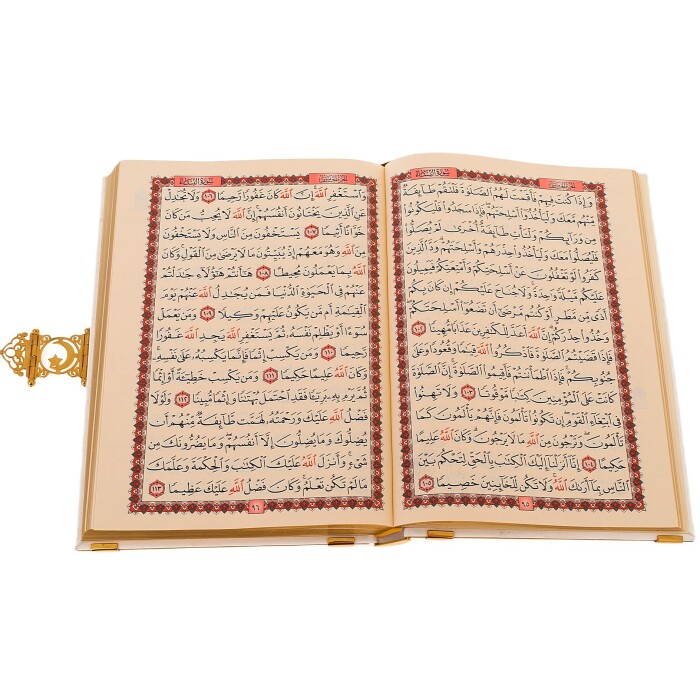 سورة النساء
وَإِذَا كُنتَ فِيهِمْ فَأَقَمْتَ لَهُمُ الصَّلَوٰةَ فَلْتَقُمْ طَآئِفَةٌ
مِنْهُمْ مَعَكَ وَلْيَأْخُذُٓوا أَسْلِحَتَهُمْ فَإِذَا سَجَدُوا فَلْيَكُونُوا
مِن وَرَآئِكُمْ وَلْتَأْتِ طَآئِفَةٌ أُخْرَىٰ لَمْ يُصَلُّوا
فَلْيُصَلُّوا مَعَكَ وَلْيَأْخُذُوا حِذْرَهُمْ وَأَسْلِحَتَهُمْ وَدَّ الَّذِينَ
كَفَرُوا لَوْ تَغْفُلُونَ عَنْ أَسْلِحَتِكُمْ وَأَمْتِعَتِكُمْ فَيَمِيلُونَ
عَلَيْكُمْ مَيْلَةً وَاحِدَةً وَلَا جُنَاحَ عَلَيْكُمْ إِن كَانَ بِكُمْ
أَذًى مِن مَطَرٍ أَوْ كُنتُمْ مَرْضَىٰٓ أَن تَضَعُٓوا أَسْلِحَتَكُمْ
وَخُذُوا حِذْرَكُمْ إِنَّ اللَّهَ أَعَدَّ لِلْكَافِرِينَ عَذَابًا مُهِينًا ١٠٢
فَإِذَا قَضَيْتُمُ الصَّلَوٰةَ فَاذْكُرُوا اللَّهَ قِيَامًا وَقُعُودًا وَعَلَىٰ
جُنُوبِكُمْ فَإِذَا اطْمَأْنَنتُمْ فَأَقِيمُوا الصَّلَوٰةَ إِنَّ الصَّلَوٰةَ
كَانَتْ عَلَى الْمُؤْمِنِينَ كِتَابًا مَوْقُوتًا ١٠٣ وَلَا تَهِنُوا
فِي ابْتِغَآءِ الْقَوْمِ إِن تَكُونُوا تَأْلَمُونَ فَإِنَّهُمْ يَأْلَمُونَ كَمَا
تَأْلَمُونَ وَتَرْجُونَ مِنَ اللَّهِ مَا لَا يَرْجُونَ وَكَانَ اللَّهُ عَلِيمًا
حَكِيمًا ١٠٤ إِنَّآ أَنزَلْنَآ إِلَيْكَ الْكِتَابَ بِالْحَقِّ لِتَحْكُمَ بَيْنَ
النَّاسِ بِمَآ أَرَىٰكَ اللَّهُ وَلَا تَكُن لِلْخَآئِنِينَ خَصِيمًا ١٠٥
٩٥
سورة النساء
وَاسْتَغْفِرِ اللَّهَ إِنَّ اللَّهَ كَانَ غَفُورًا رَحِيمًا ١٠٦ وَلَا تُجَادِلْ
عَنِ الَّذِينَ يَخْتَانُونَ أَنفُسَهُمْ إِنَّ اللَّهَ لَا يُحِبُّ مَن كَانَ
خَوَّانًا أَثِيمًا ١٠٧ يَسْتَخْفُونَ مِنَ النَّاسِ وَلَا يَسْتَخْفُونَ
مِنَ اللَّهِ وَهُوَ مَعَهُمْ إِذْ يُبَيِّتُونَ مَا لَا يَرْضَىٰ مِنَ الْقَوْلِ وَكَانَ
اللَّهُ بِمَا يَعْمَلُونَ مُحِيطًا ١٠٨ هَٓا أَنتُمْ هَٓؤُلَآءِ جَادَلْتُمْ
عَنْهُمْ فِي الْحَيَوٰةِ الدُّنْيَا فَمَن يُجَادِلُ اللَّهَ عَنْهُمْ يَوْمَ
الْقِيَٰمَةِ أَم مَن يَكُونُ عَلَيْهِمْ وَكِيلًا ١٠٩ وَمَن يَعْمَلْ
سُٓوءًا أَوْ يَظْلِمْ نَفْسَهُ ثُمَّ يَسْتَغْفِرِ اللَّهَ يَجِدِ اللَّهَ غَفُورًا
رَحِيمًا ١١٠ وَمَن يَكْسِبْ إِثْمًا فَإِنَّمَا يَكْسِبُهُ عَلَىٰ نَفْسِهِ
وَكَانَ اللَّهُ عَلِيمًا حَكِيمًا ١١١ وَمَن يَكْسِبْ خَطِٓيئَةً أَوْ إِثْمًا
ثُمَّ يَرْمِ بِهِ بَرِٓيئًا فَقَدِ احْتَمَلَ بُهْتَانًا وَإِثْمًا مُبِينًا ١١٢ وَلَوْلَا
فَضْلُ اللَّهِ عَلَيْكَ وَرَحْمَتُهُ لَهَمَّتْ طَآئِفَةٌ مِنْهُمْ أَن
يُضِلُّوكَ وَمَا يُضِلُّونَ إِلَّآ أَنفُسَهُمْ وَمَا يَضُرُّونَكَ مِن
شَيْءٍ وَأَنزَلَ اللَّهُ عَلَيْكَ الْكِتَابَ وَالْحِكْمَةَ وَعَلَّمَكَ
مَا لَمْ تَكُن تَعْلَمُ وَكَانَ فَضْلُ اللَّهِ عَلَيْكَ عَظِيمًا ١١٣
٩٦